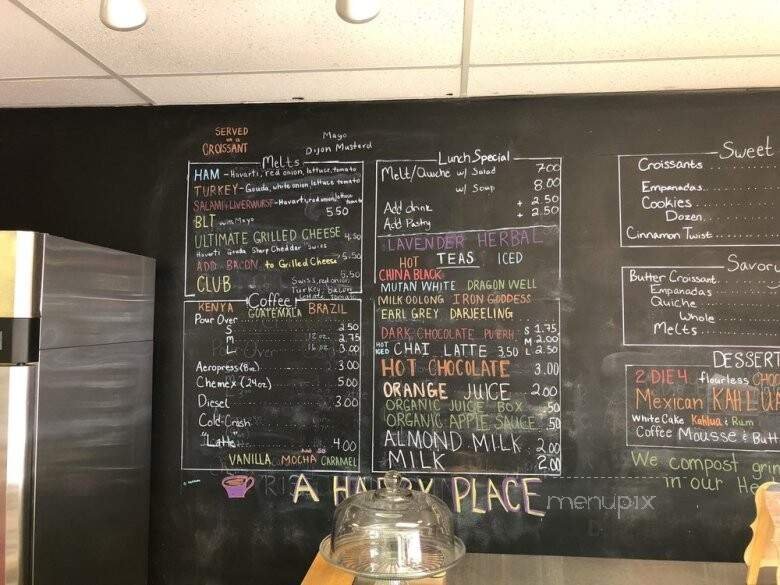 SERVED
on a
CROISSANT
Mayo
Dijon Mustard
Melts
HAM - Havarti, red onion, lettuce, tomato
TURKEY - Gouda, white onion, lettuce tomato
SALAMI & LIVERWURST - Havarti, red onion, lettuce
BLT with Mayo 5.50
ULTIMATE GRILLED CHEESE 4.50
Havarti Gouda Sharp Cheddar Swiss
ADD BACON to Grilled Cheese 5.50
5.50
CLUB Swiss, red onion,
Turkey, Bacon
Lettuce, Tomato
Coffee
KENYA GUATEMALA BRAZIL
Pour Over
S 2.50
M 12 oz. 2.75
L 16 oz. 3.00
Aeropress (8oz) 3.00
Chemex (24oz) 5.00
Diesel 3.00
Cold-Crash
"Latte" 4.00
VANILLA MOCHA CARAMEL
Lunch Special
Melt/Quiche w/ Salad 7.00
w/ Soup 8.00
Add drink + 2.50
Add Pastry + 2.50
LAVENDER HERBAL
HOT TEAS ICED
CHINA BLACK
MUTAN WHITE DRAGON WELL
MILK OOLONG IRON GODDESS
EARL GREY DARJEELING
DARK CHOCOLATE PUERH S 1.75
M 2.00
HOT
ICED CHAI LATTE 3.50 L 2.50
HOT CHOCOLATE 3.00
ORANGE JUICE 2.00
ORGANIC JUICE BOX .50
ORGANIC APPLE SAUCE .50
ALMOND MILK 2.00
MILK 2.00
Sweet
Croissants
Empanadas
Cookies
Dozen
Cinnamon Twist
Savory
Butter Croissant
Empanadas
Quiche
Whole
Melts
DESSERT
2 DIE 4 flourless CHOC
Mexican KAHLUA
White Cake Kahlua & Rum
Coffee Mousse & Butt
We compost gri
in our He
A HAPPY PLACE
menupix